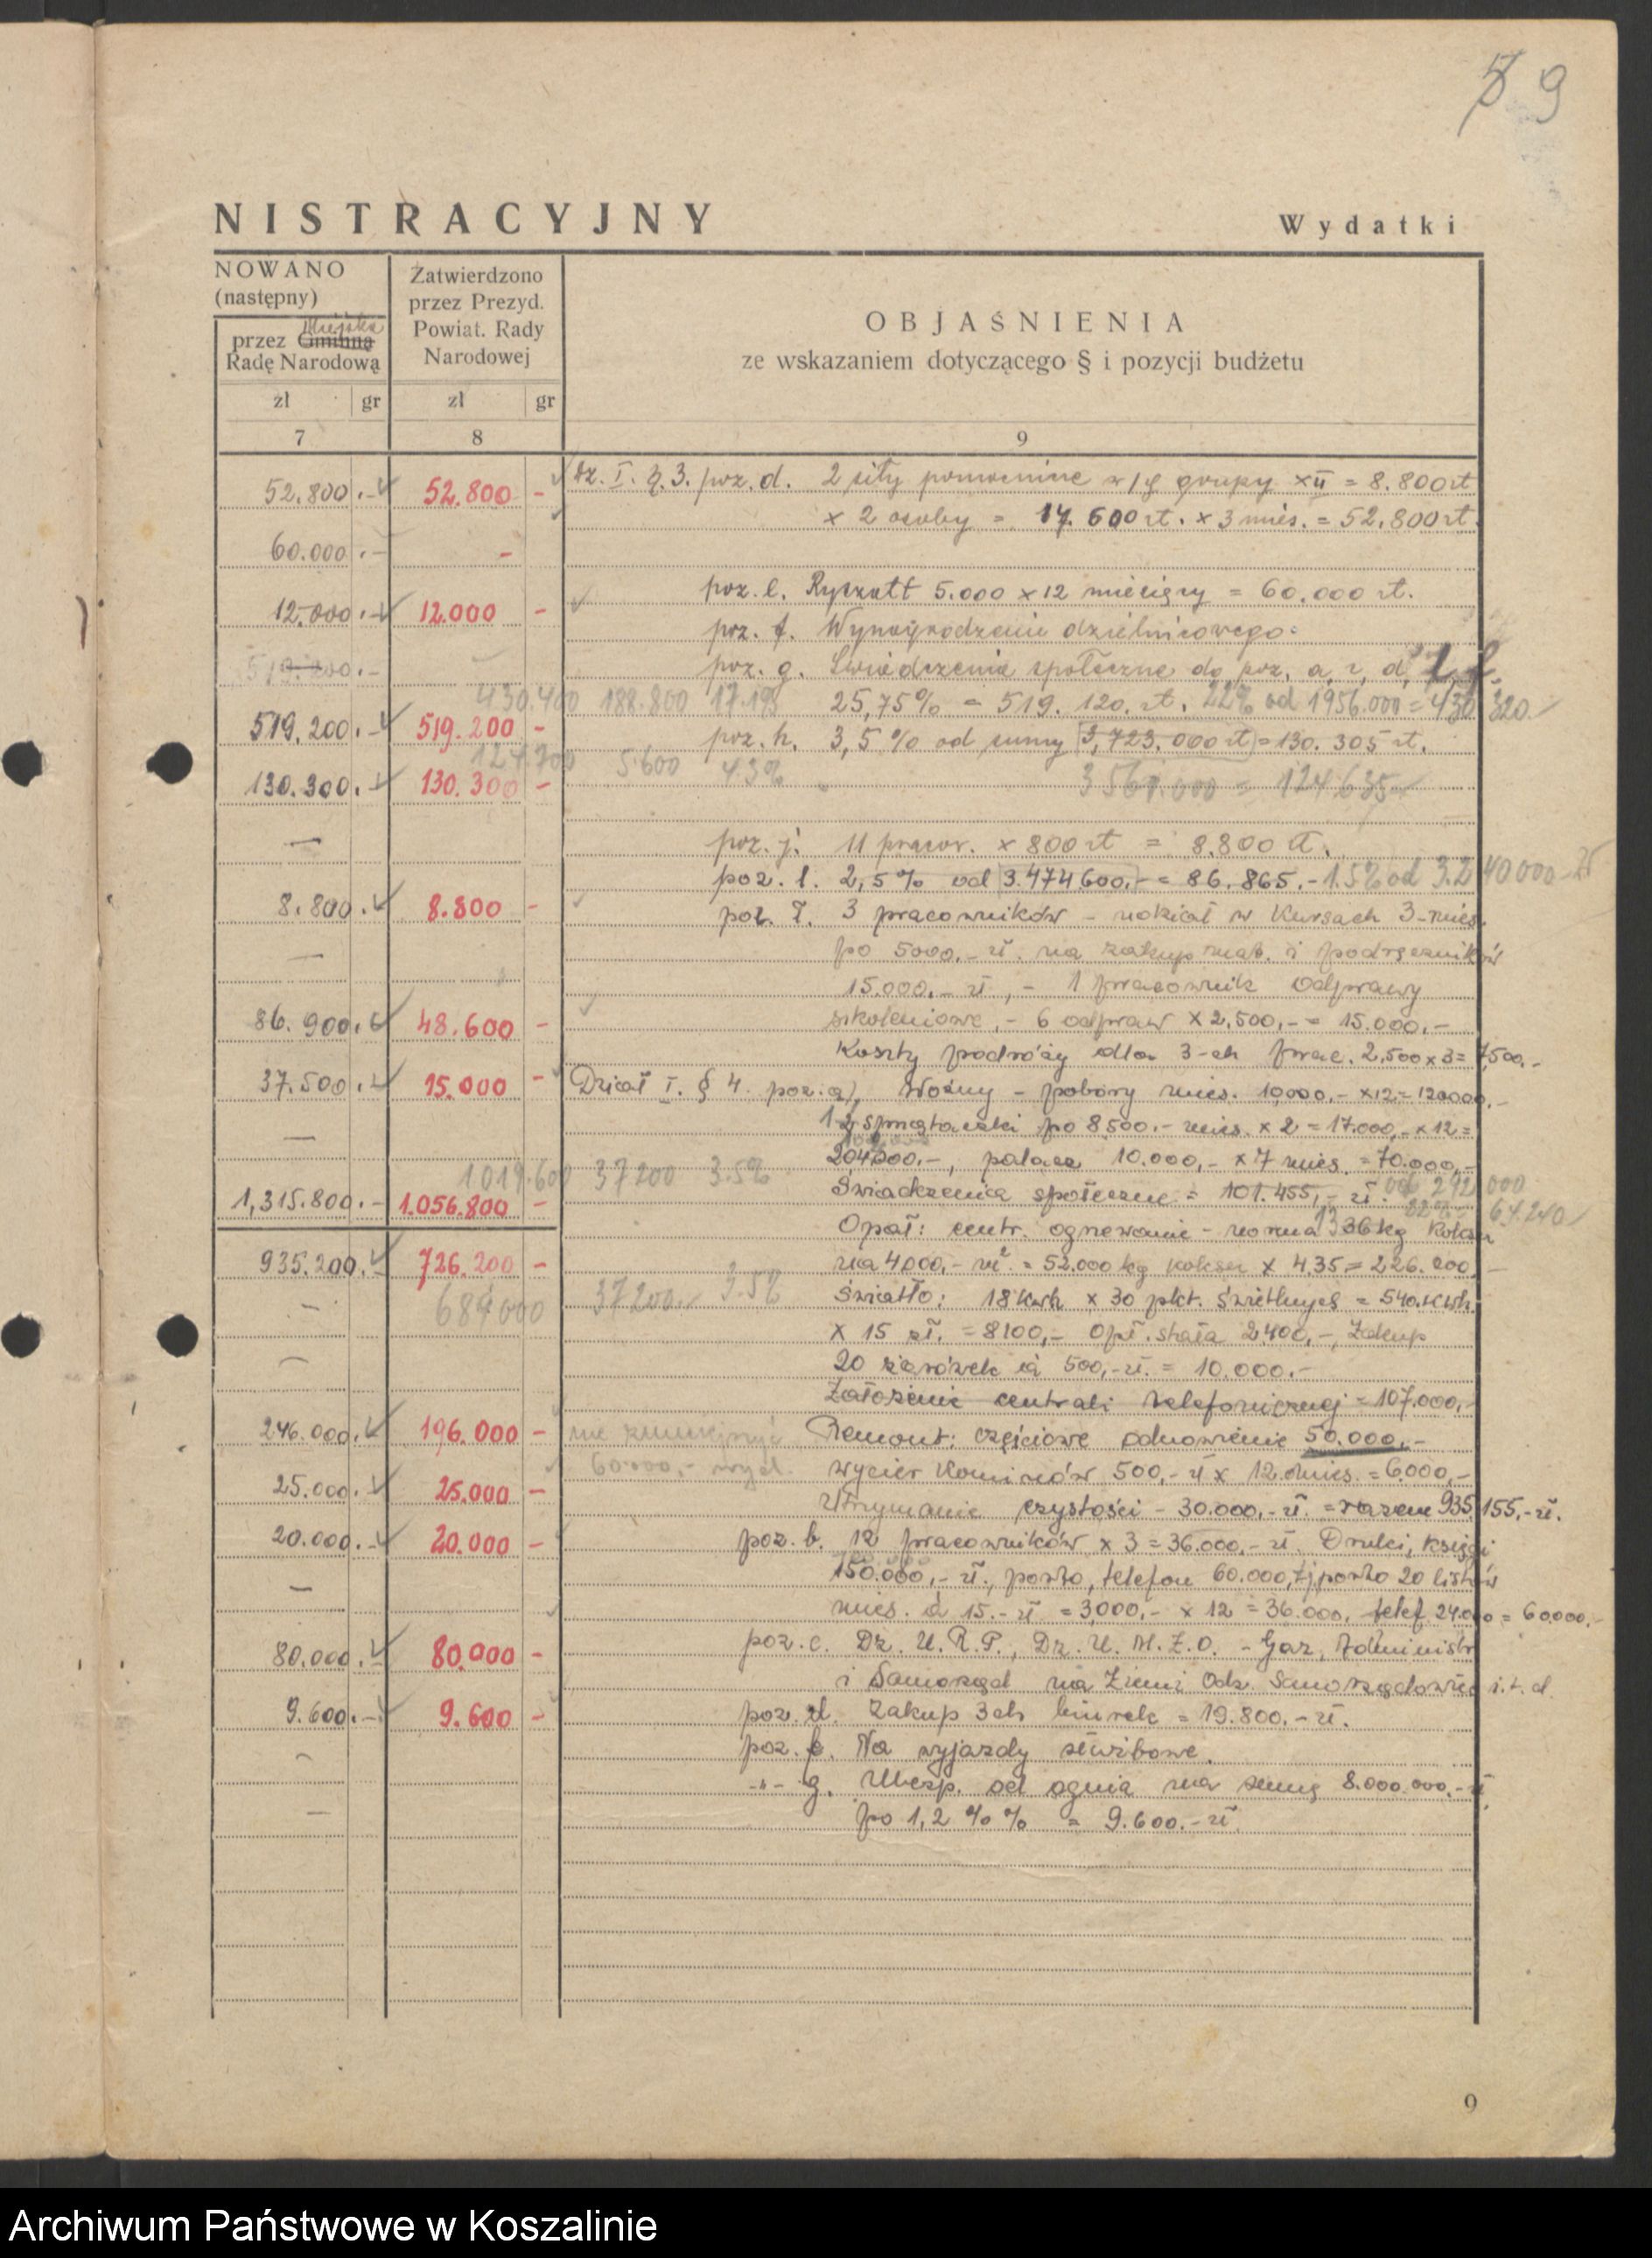 9
NISTRACYJNY
Wydatki
NOWANO
(następny)
Miejską
przez Gminną
Radę Narodową
Zatwierdzono
przez Prezyd.
Powiat. Rady
Narodowej
OBJAŚNIENIA
ze wskazaniem dotyczącego § i pozycji budżetu
zł gr zł gr
7 8 9
52.800.- 52.800 - dz. I. § 3. poz. d. 2 siły pomocnicze grupy = 8.800 zł
x 2 osoby = 17.600 zł. x 3 mies. = 52.800 zł.
60.000.- -
poz. e. Ryczałt 5.000 x 12 miesięcy = 60.000 zł.
12.000.- 12.000 -
poz. f. Wynagrodzenie dzielnicowego.
poz. g. Świadczenia społeczne do poz. a, c, d,
430.400 188.800 25,75% = 519.120 zł. 22% od 1956.000 = 430 320.-
519.200.- 519.200 -
poz. h. 3,5% od sumy 3,723.000 zł = 130.305 zł.
124.700 5.600 4.3% = 124.635.-
130.300.- 130.300 -
—
poz. j. 11 pracow. x 800 zł = 8.800 zł.
poz. l. 2,5% od 3.474600.- = 86.865.- 1.5% od 3.240000.-
8.800.- 8.800 -
poz. ł. 3 pracowników - udział w Kursach 3-mies.
po 5000.- zł. na zakup mat. i podręczników
—
15.000.- zł, - 1 pracownik odprawy
86.900.- 48.600 - szkoleniowe, - 6 odpraw x 2,500,- = 15.000.-
Koszty podróży dla 3-ch prac. 2,500 x 3 = 7,500.-
37.500.- 15.000 - Dział I. § 4. poz. a), Woźny - pobory mies. 10,000.- x 12 = 120000.-
sprzątaczki po 8.500.- mies. x 2 = 17.000,- x 12 =
—
204000.-, palacz 10.000,- x 7 mies. = 70.000,-
1019.600 37200 3.5%
Świadczenia społeczne = 101.455,- zł. od 292 000
1,315.800.- 1.056.800 - 22% - 64.240.-
Opał: centr. ogrzewanie - norma 13 kg koksu
935.200.- 726.200 - na 4000,- m². = 52.000 kg koksu x 4.35 = 226.200.-
684000 37200.- 3.5%
Światło: 18 kwh x 30 pkt. świetlnych = 540 Kwh.
-
x 15 zł. = 8100,- opł. stała 2,400,-, Zakup
20 żarówek à 500,- zł. = 10.000.-
-
Założenie centrali telefonicznej = 107.000,-
246.000.- 196.000 - nie zmniejszyć Remont: częściowe odnowienie 50.000.-
60.000,- wyd. wycier Kominów 500,- zł x 12 mies. = 6,000,-
25.000.- 25.000 -
Utrzymanie czystości - 30.000,- zł. = razem 935.155,- zł.
20.000.- 20.000 -
poz. b. 12 pracowników x 3 = 36.000,- zł. Druki, księgi
150.000,- zł., porto, telefon 60.000, tj porto 20 listów
—
mies. à 15.- zł = 3,000,- x 12 = 36.000, telef. 24.000 = 60.000.-
80.000.- 80.000 -
poz. c. Dz. U. R.P., Dz. U. M.Z.O. - Gaz, Administr.
i Samorząd na Ziemi Odz. Samorządowiec i.t.d.
9.600.- 9.600 -
poz. d. Zakup 3ch biurek = 19.800.- zł.
poz. f. Na wyjazdy służbowe.
-
-"- g. Ubezp. od ognia na sumę 8.000.000,- zł
—
po 1,2 %% = 9.600.- zł.
9
Archiwum Państwowe w Koszalinie